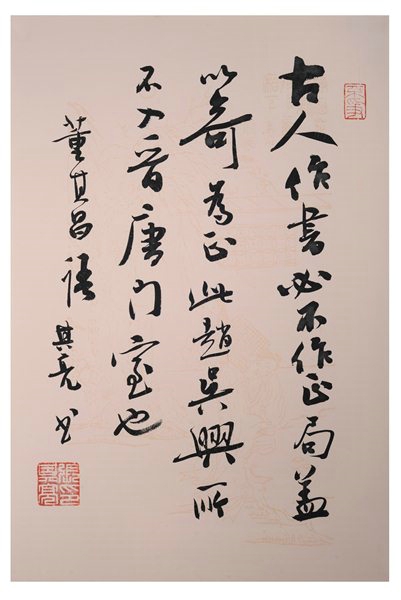 古人作書必不作正局蓋
以奇為正此趙吳興所
不入晉唐門室也
董其昌語 其亮書